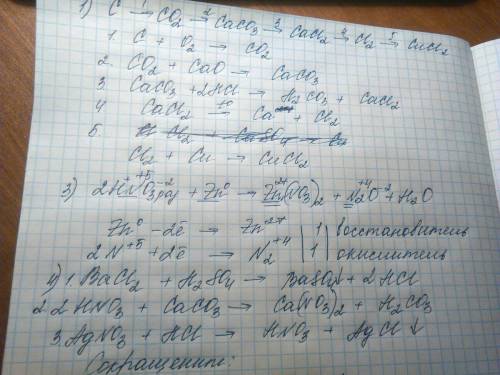 1) C →¹ CO₂ →² CaCO₃ →³ CaCl₂ →⁴ Cl₂ →⁵ CuCl₂
1. C + O₂ → CO₂
2. CO₂ + CaO → CaCO₃
3. CaCO₃ + 2HCl → H₂CO₃ + CaCl₂
4. CaCl₂ →t° Ca + Cl₂
5. Cl₂ + CuSO₄ → Cu
Cl₂ + Cu → CuCl₂
3) 2HN⁺⁵O₃⁻² раз + Zn⁰ → Zn²⁺(NO₃)₂ + N₂⁺⁴O⁻² + H₂O
Zn⁰ - 2ē → Zn²⁺ | 1 | восстановитель
2N⁺⁵ + 2ē → N₂⁺⁴ | 1 | окислитель
4) 1. BaCl₂ + H₂SO₄ → BaSO₄↓ + 2HCl
2. 2HNO₃ + CaCO₃ → Ca(NO₃)₂ + H₂CO₃
3. AgNO₃ + HCl → HNO₃ + AgCl↓